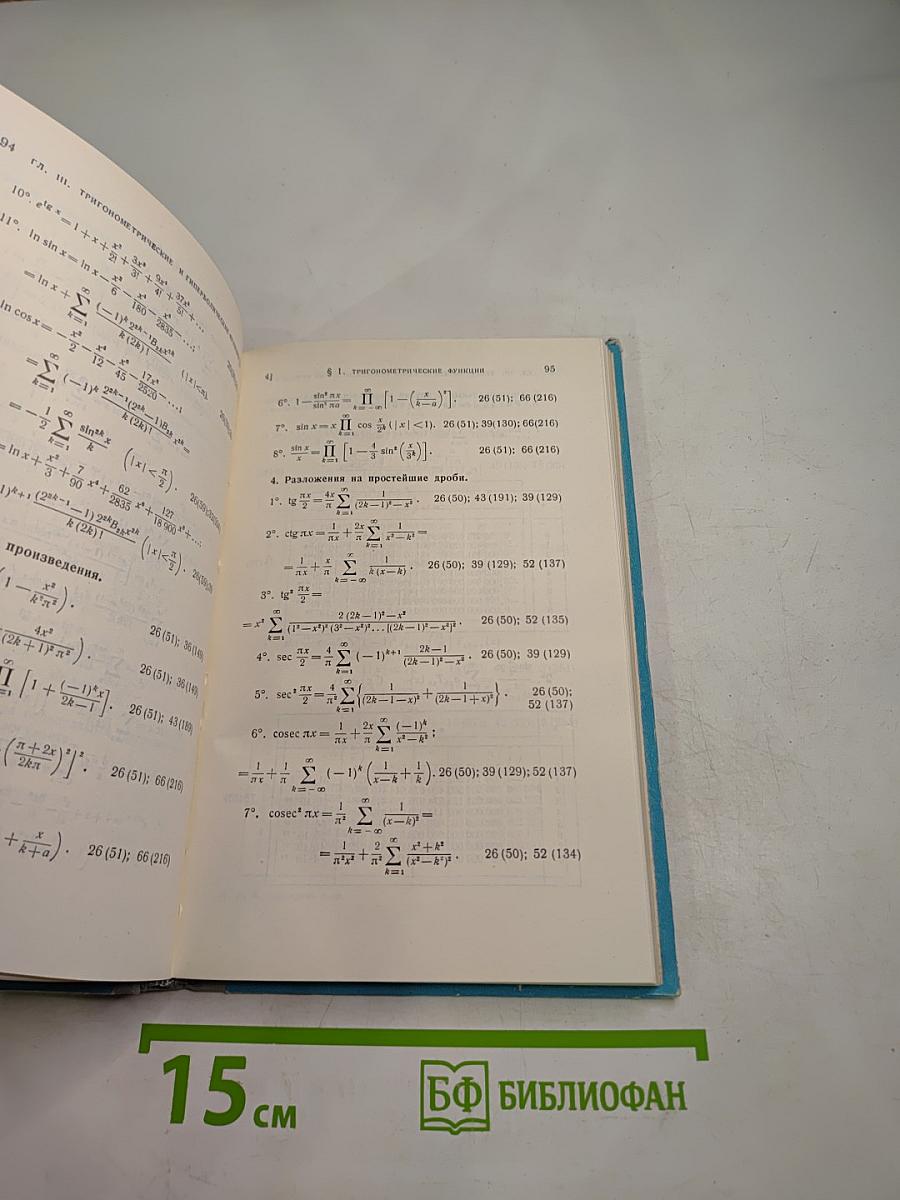 94 ГЛ. III. ТРИГОНОМЕТРИЧЕСКИЕ И ГИПЕРБОЛИЧЕСКИЕ
10°. e^{tg x} = 1 + x + x²/2! + 3x³/3! + 9x⁴/4! + 37x⁵/5! + ...
11°. ln sin x = ln x − x²/6 − x⁴/180 − x⁶/2835 − ...;
= ln x + ∑_{k=1}^{∞} (−1)^k 2^{2k−1} B_{2k} x^{2k} / k (2k)! (|x|<π).
ln cos x = − x²/2 − x⁴/12 − x⁶/45 − 17x⁸/2520 − ...;
= ∑_{k=1}^{∞} (−1)^k 2^{2k−1} (2^{2k}−1) B_{2k} x^{2k} / k (2k)! =
= − 1/2 ∑_{k=1}^{∞} sin^{2k} x / k (|x| < π/2).
= ln x + x²/3 + 7/90 x⁴ + 62/2835 x⁶ + 127/18 900 x⁸ + ...;
1)^{k+1} (2^{2k−1}−1) 2^{2k} B_{2k} x^{2k} / k (2k)! (|x| < π/2).
произведения.
(1 − x²/k²π²).
26 (51); 36 (149)
4x²/(2k+1)²π²).
26 (51); 36 (149)
∏ [1 + (−1)^k x/2k−1]. 26 (51); 43 (189)
(π+2x/2kπ)²]². 26 (51); 66 (216)
+ x/k+a). 26 (51); 66 (216)
4] § 1. ТРИГОНОМЕТРИЧЕСКИЕ ФУНКЦИИ 95
6°. 1 − sin² πx/sin² πa = ∏_{k=−∞}^{∞} [1 − (x/k−a)²]. 26 (51); 66 (216)
7°. sin x = x ∏_{k=1}^{∞} cos x/2^k (|x| < 1). 26 (51); 39(130); 66(216)
8°. sin x/x = ∏_{k=1}^{∞} [1 − 4/3 sin² (x/3^k)]. 26 (51); 66 (216)
4. Разложения на простейшие дроби.
1°. tg πx/2 = 4x/π ∑_{k=1}^{∞} 1/(2k−1)²−x². 26 (50); 43 (191); 39 (129)
2°. ctg πx = 1/πx + 2x/π ∑_{k=1}^{∞} 1/x²−k² =
= 1/πx + x/π ∑_{k=−∞}^{∞} 1/k (x−k). 26 (50); 39 (129); 52 (137)
3°. tg² πx/2 =
= x² ∑_{k=1}^{∞} 2 (2k−1)²−x²/(1²−x²)² (3²−x²)² ... [(2k−1)²−x²]². 26 (50); 52 (135)
4°. sec πx/2 = 4/π ∑_{k=1}^{∞} (−1)^{k+1} 2k−1/(2k−1)²−x². 26 (50); 39 (129)
5°. sec² πx/2 = 4/π² ∑_{k=1}^{∞} {1/(2k−1−x)² + 1/(2k−1+x)²}. 26 (50);
52 (137)
6°. cosec πx = 1/πx + 2x/π ∑_{k=1}^{∞} (−1)^k/x²−k²;
= 1/πx + 1/π ∑_{k=−∞}^{∞} (−1)^k (1/x−k + 1/k). 26 (50); 39 (129); 52 (137)
7°. cosec² πx = 1/π² ∑_{k=−∞}^{∞} 1/(x−k)² =
= 1/π²x² + 2/π² ∑_{k=1}^{∞} x²+k²/(x²−k²)². 26 (50); 52 (134)
15 см
БФ БИБЛИОФАН